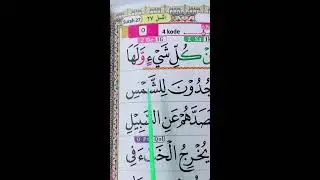 Surah 27
النمل ٢٧
4 kode
كُلِّ شَيْءٍ وَّلَهَا
جُدُوْنَ لِلشَّمْسِ
صَدَّهُمْ عَنِ السَّبِيْلِ
يُخْرِجُ الْخَبْءَ فِي